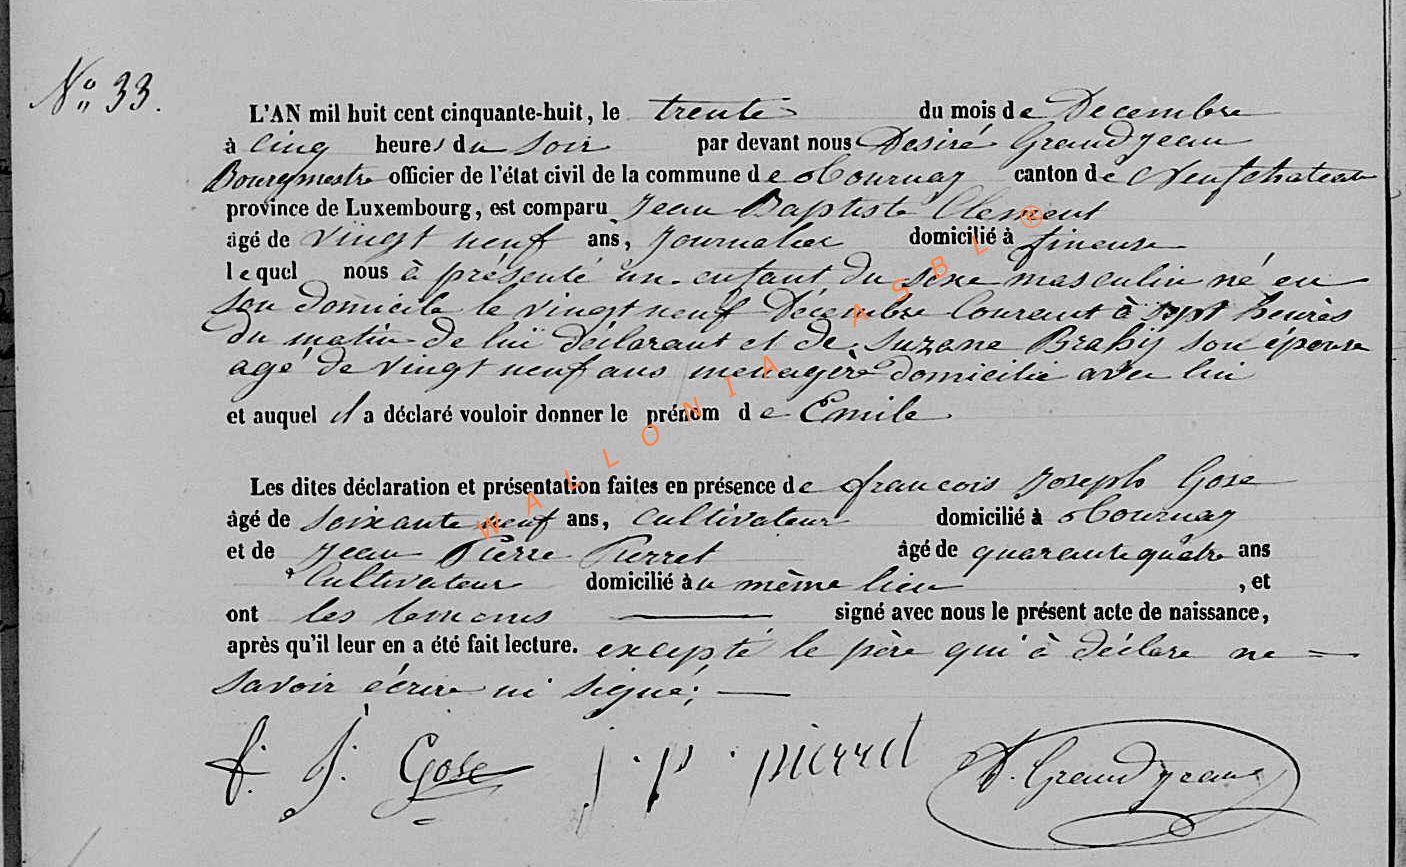 N° 33.
L'AN mil huit cent cinquante-huit, le trente du mois de Decembre
à cinq heures du soir par devant nous Desiré Grandjean
Bourgmestre officier de l'état civil de la commune de Tournay canton de Neufchateau
province de Luxembourg, est comparu Jean Baptiste Clement
âgé de vingt neuf ans, Journalier domicilié à
lequel nous à présenté un enfant du sexe masculin né en
son domicile le vingt neuf Décembre Courant à sept heures
du matin de lui déclarant et de Suzane Brahy son épouse
agé de vingt neuf ans menagère domicilié avec lui
et auquel il a déclaré vouloir donner le prénom de Emile
Les dites déclaration et présentation faites en présence de francois Joseph Gose
âgé de soixante neuf ans, Cultivateur domicilié à Tournay
et de Jean Pierre Pierret âgé de quarante quatre ans
Cultivateur domicilié au même lieu , et
ont les temoins signé avec nous le présent acte de naissance,
après qu'il leur en a été fait lecture. excepté le père qui à déclare ne
savoir écrire ni signé;
f. J. Gose j. p. pierret D. Grandjean
WALLONIA ASBL ®